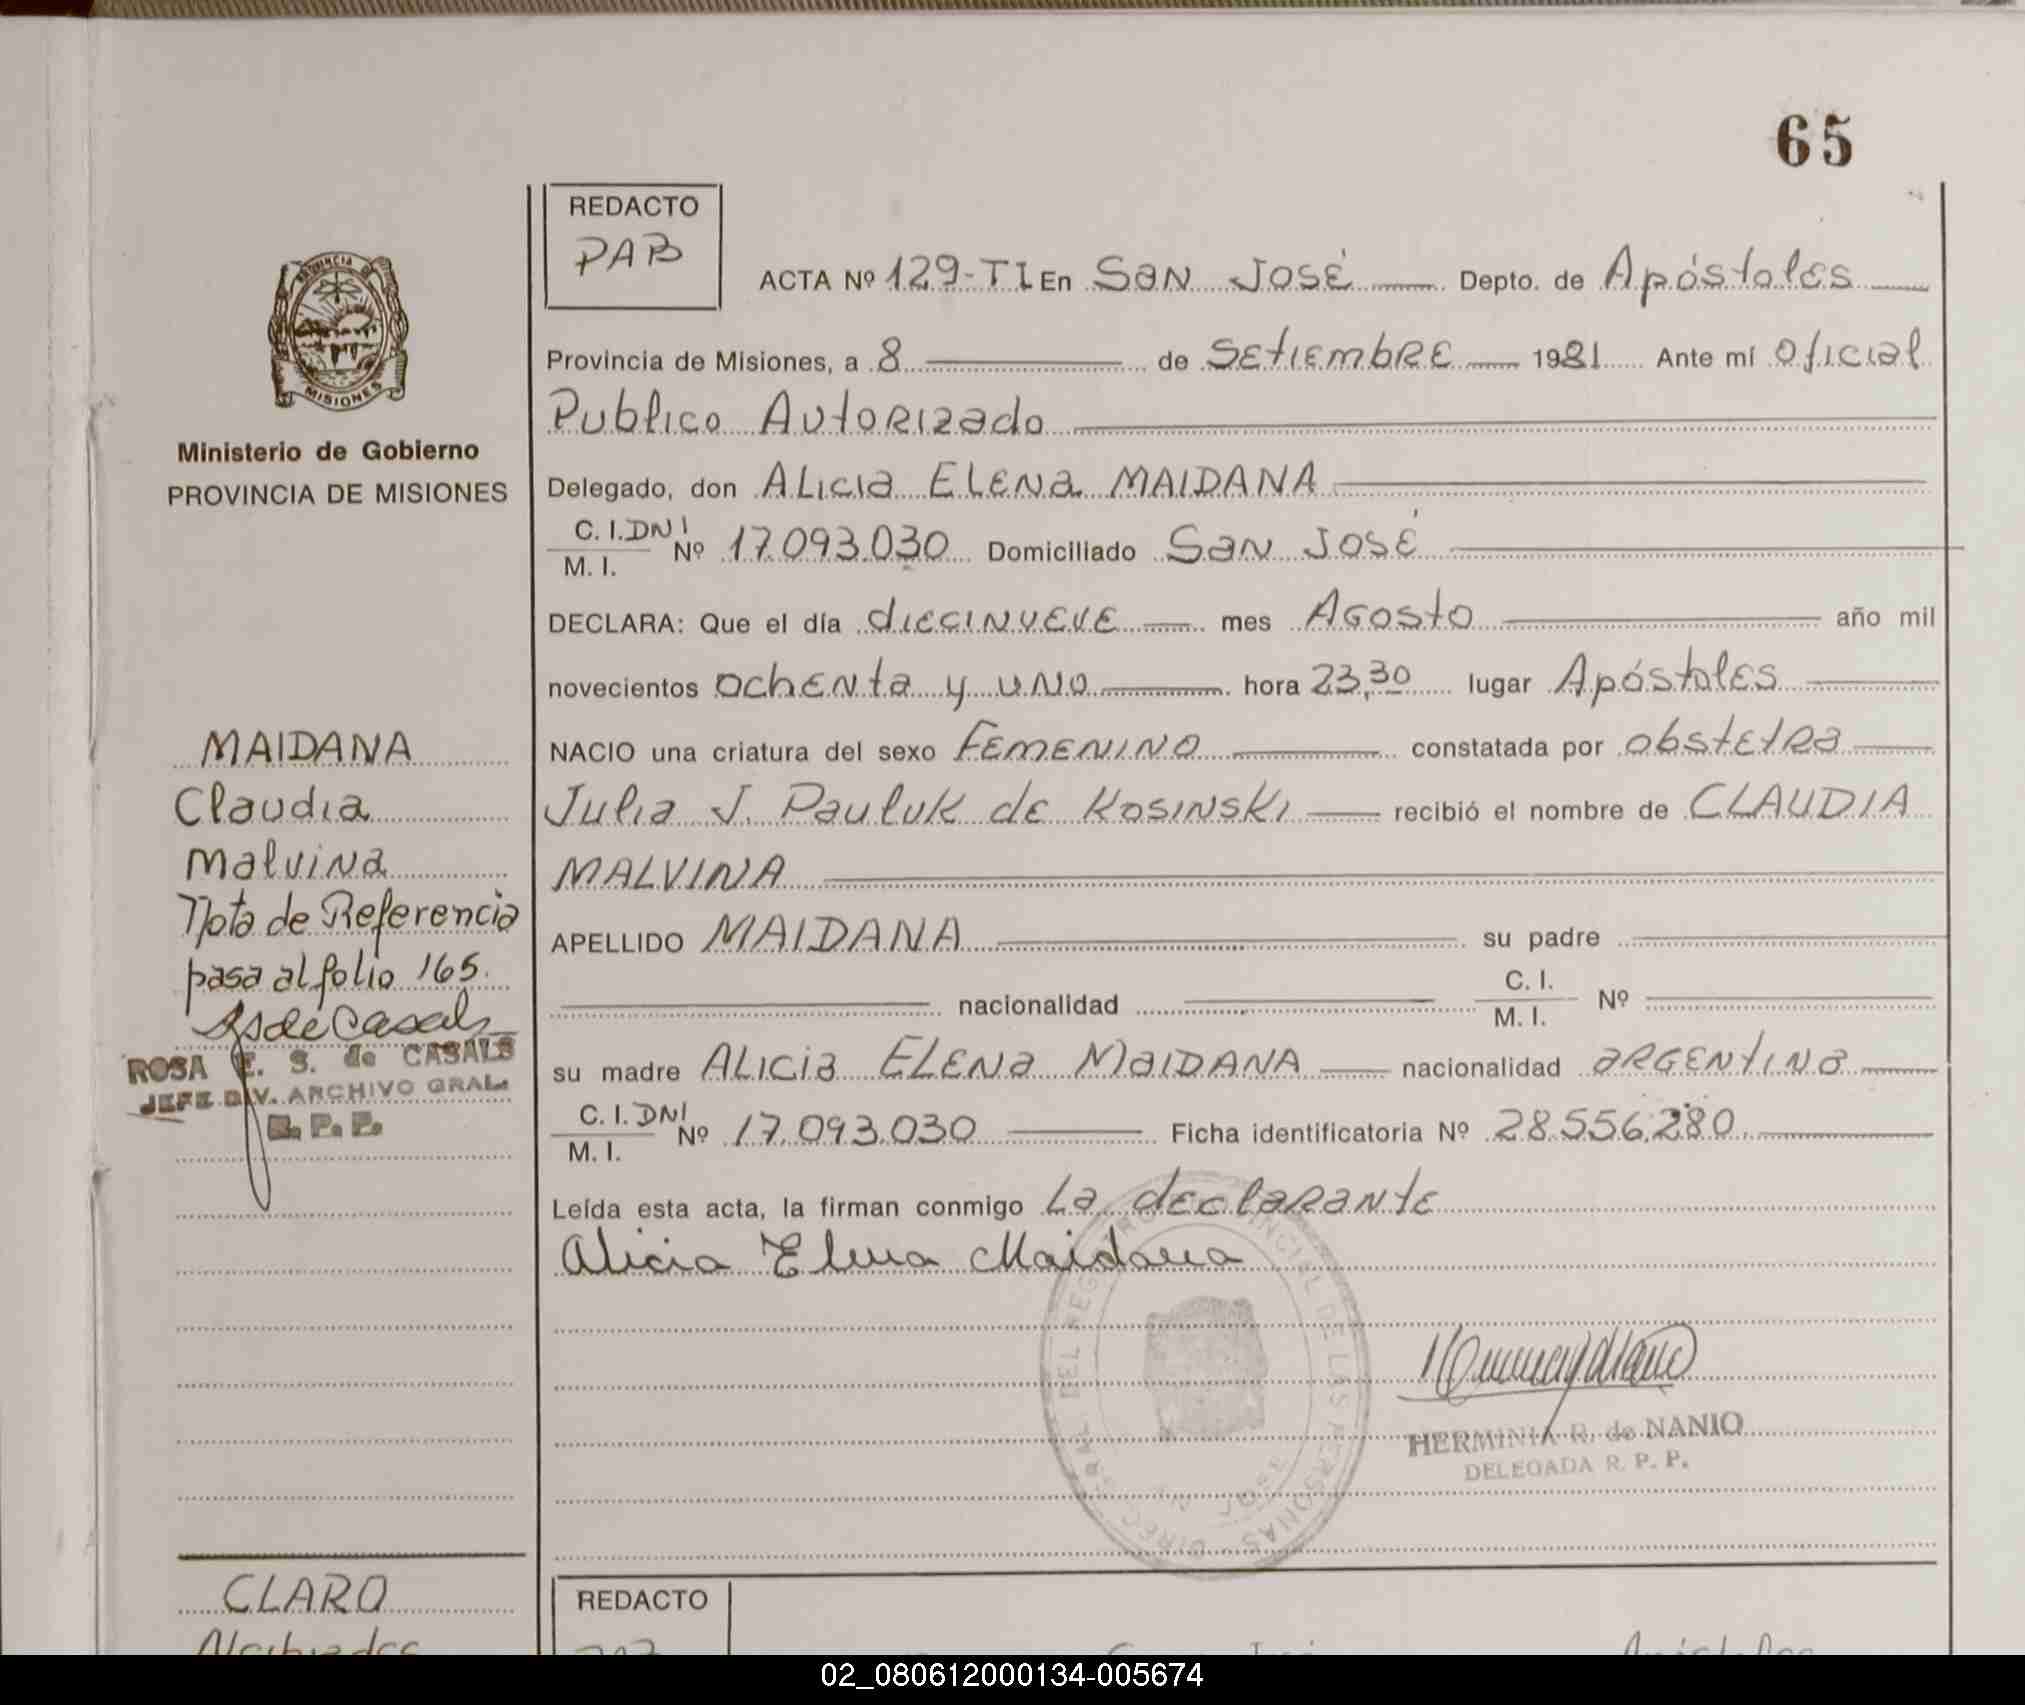 65
REDACTO
PAB
ACTA Nº 129-TI En San José Depto. de Apóstoles
Provincia de Misiones, a 8 de Setiembre 1981 Ante mí Oficial
Publico Autorizado
Delegado, don Alicia Elena MAIDANA
C. I. DNI
M. I. Nº 17.093.030 Domiciliado San José
DECLARA: Que el día diecinueve mes Agosto año mil
novecientos ochenta y uno hora 23,30 lugar Apóstoles
NACIO una criatura del sexo Femenino constatada por obstetra
Julia J. Pauluk de Kosinski recibió el nombre de CLAUDIA
MALVINA
APELLIDO MAIDANA su padre
nacionalidad C. I. M. I. Nº
su madre Alicia Elena MAIDANA nacionalidad argentina
C. I. DNI
M. I. Nº 17.093.030 Ficha identificatoria Nº 28.556.280
Leída esta acta, la firman conmigo La declarante
Alicia Elena Maidana
HERMINIA R. de NANIO
DELEGADA R. P. P.
PROVINCIA DE
MISIONES
Ministerio de Gobierno
PROVINCIA DE MISIONES
MAIDANA
Claudia
Malvina
Nota de Referencia
pasa al folio 165.
ROSA E. S. de CASALS
JEFE DIV. ARCHIVO GRAL.
R. P. P.
CLARO
REDACTO
02_080612000134-005674